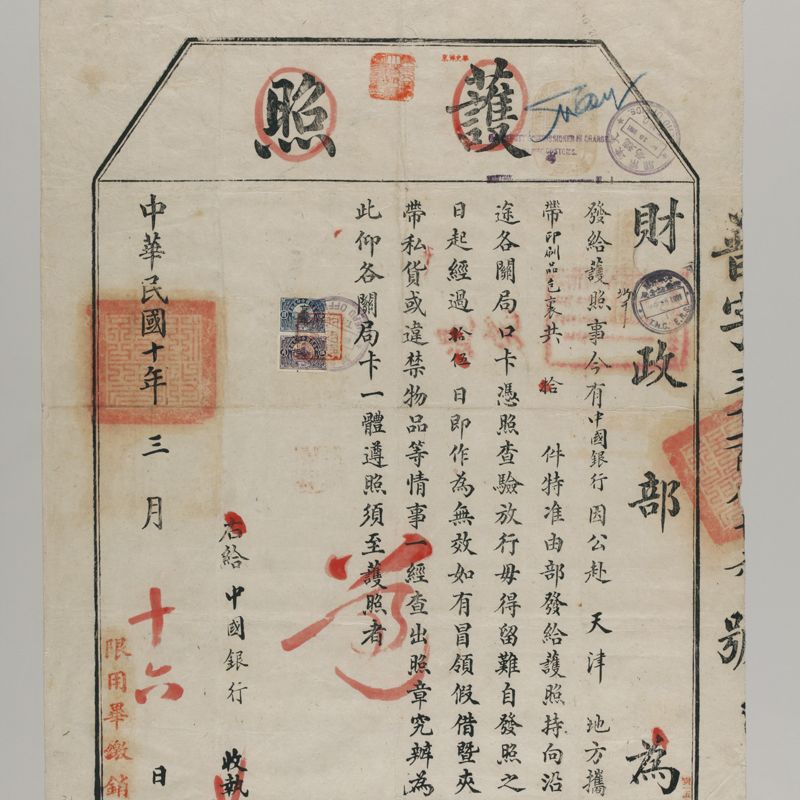 護照
財政部為
發給護照事今有中國銀行因公赴天津地方攜
帶印刷品包裹共拾件特准由部發給護照持向沿
途各關局口卡憑照查驗放行毋得留難自發照之
日起經過拾伍日即作為無效如有冒領假借暨夾
帶私貨或違禁物品等情事一經查出照章究辦為
此仰各關局卡一體遵照須至護照者
遵
右給中國銀行收執
中華民國十年三月十六日
限用畢繳銷